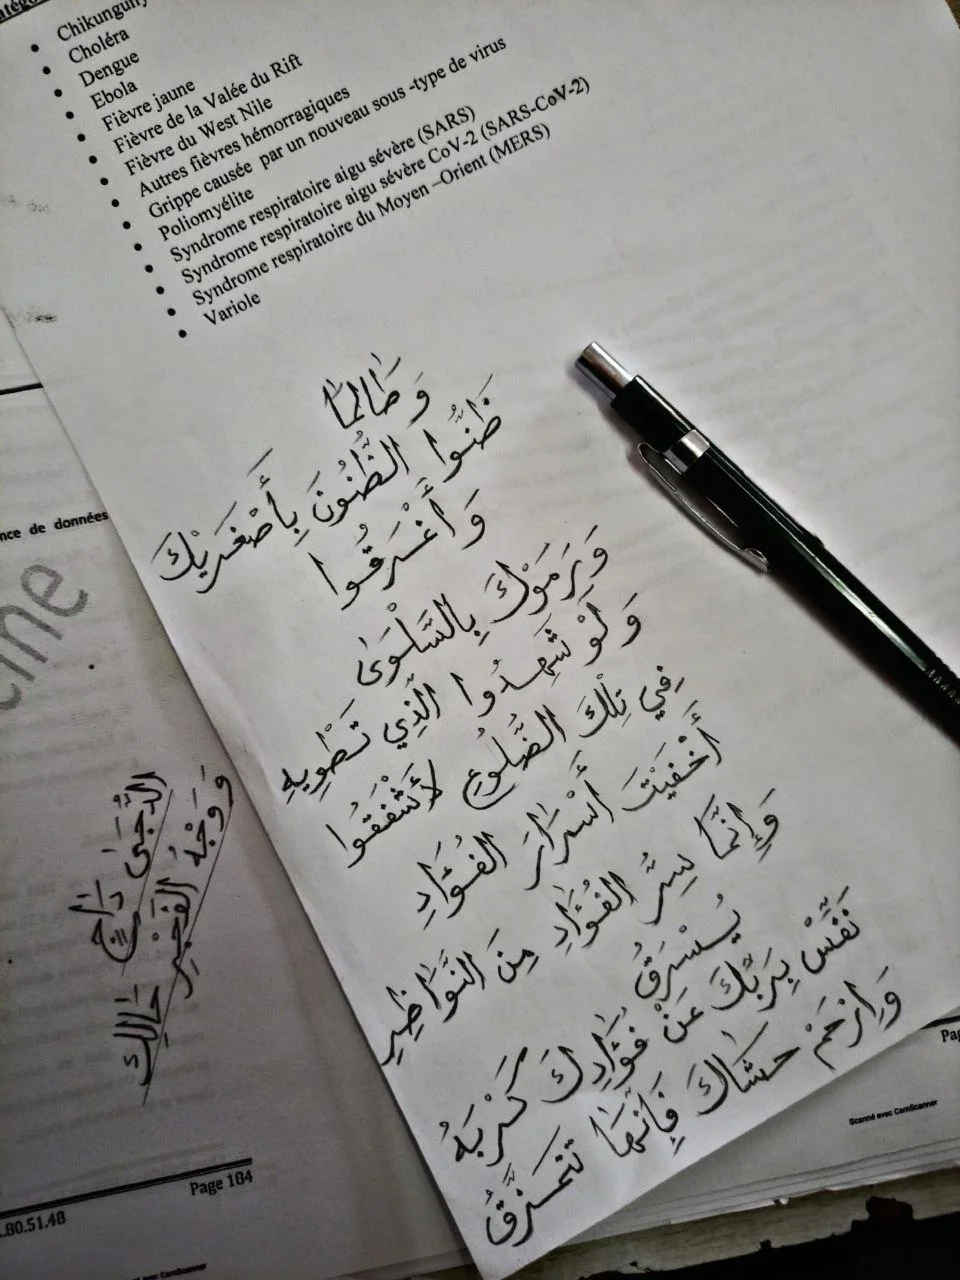 Chikunguny
Choléra
Dengue
Ebola
Fièvre jaune
Fièvre de la Valée du Rift
Fièvre du West Nile
Autres fièvres hémorragiques
Grippe causée par un nouveau sous -type de virus
Poliomyélite
Syndrome respiratoire aigu sévère (SARS)
Syndrome respiratoire aigu sévère CoV-2 (SARS-CoV-2)
Syndrome respiratoire du Moyen –Orient (MERS)
Variole
وَطَالمَا
ظَنُّوا الظُّنُونَ بِأَصْغَرَيْكَ
وَأَغْرَقُوا
وَيَرمَوْكَ بِالسَّلْوَى
وَلَوْ شَهِدُوا الَّذِي تَطْوِيهِ
فِي تِلْكَ الضُّلُوعِ لأَشْفَقُوا
أَخْفَيْتَ أَسْرَارَ الفُؤَادِ
وَإِنَّمَا سِرُّ الفُؤَادِ مِنَ النَّوَاظِرِ
يُسْرَقُ
نَفِّسْ بِرَبِّكَ عَنْ فُؤَادِكَ كَرْبَهُ
وَارْحَمْ حَشَاكَ فَإِنَّهَا تَتَمَزَّقُ
nce de données
ine
الدُّجَى دَاجٍ
وَوَجْهُ الفَجْرِ حَالِك
Page 184
.80.51.48
Scanné avec CamScanner
Pag